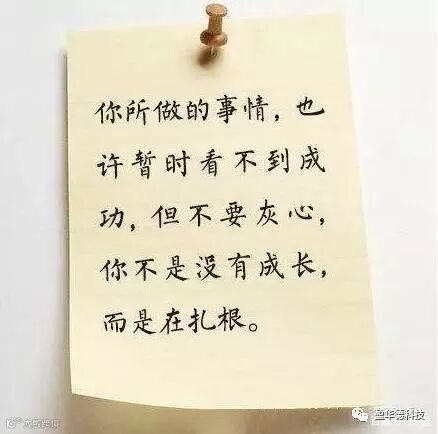 你所做的事情，也
许暂时看不到成
功，但不要灰心，
你不是没有成长，
而是在扎根。